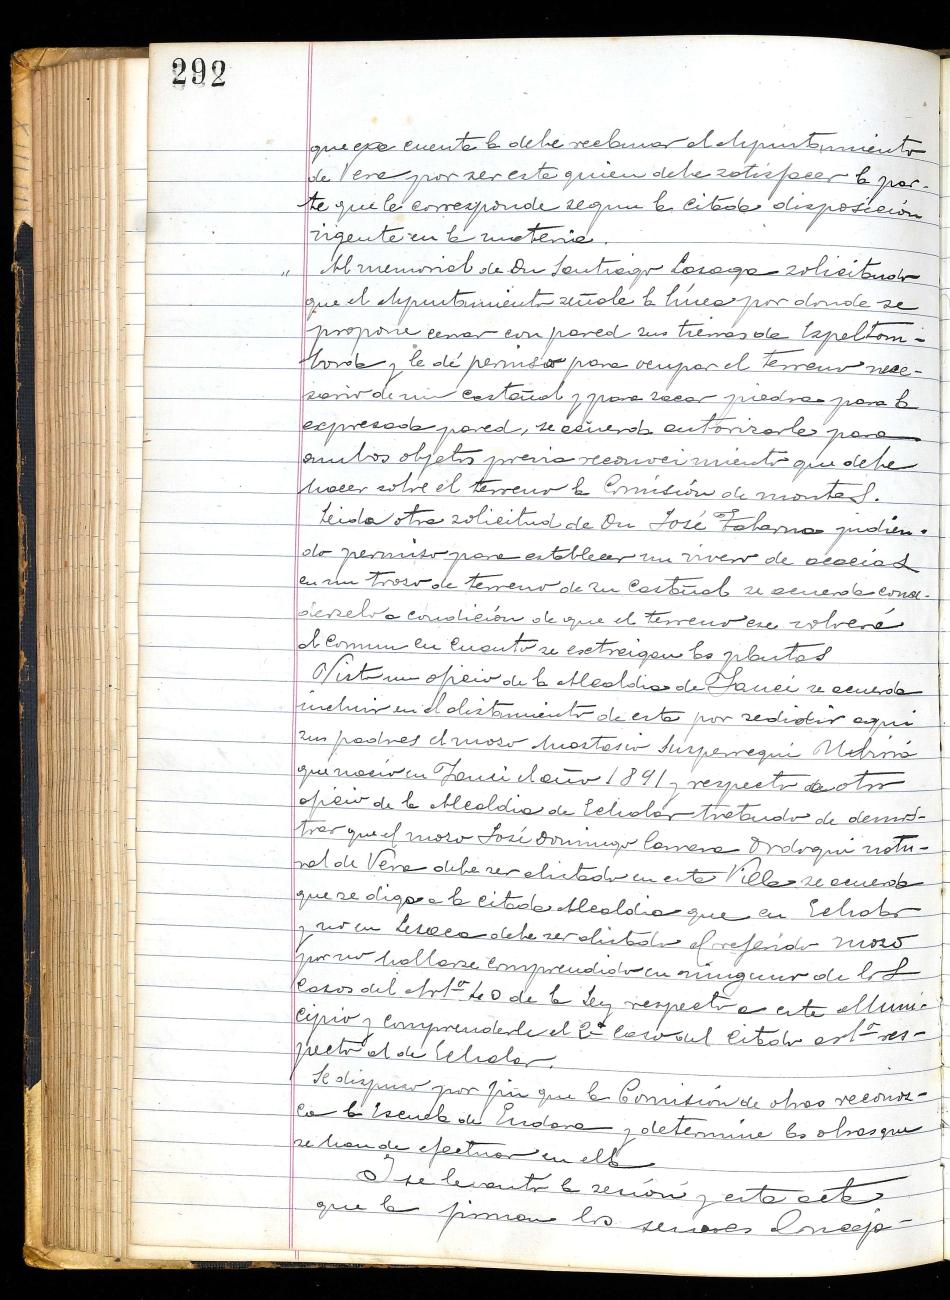 292
que esa cuenta la debe reclamar el Ayuntamiento
de Vera por ser este quien debe satisfacer la par-
te que le corresponde segun la citada disposición
vigente en la materia.
" Al memorial de Dn Santiago Lasaga solicitando
que el Ayuntamiento señale la línea por donde se
propone cerrar con pared sus tierras de Espeltom-
borda y le dé permiso para ocupar el terreno nece-
sario de un castañal y para sacar piedra para la
expresada pared, se acuerda autorizarle para
ambos objetos previo reconocimiento que debe
hacer sobre el terreno la Comisión de montes.
Leida otra solicitud de Dn José pidien-
do permiso para establecer un vivero de acacias
en un troso de terreno de su castañal se acuerda conce-
derselo a condición de que el terreno ese volverá
al comun en cuanto se extraigan las plantas
Visto un oficio de la Alcaldia de Yanci se acuerda
incluir en el alistamiento de esta por residir aqui
sus padres el moso Anastasio Susperregui
que nació en Yanci el año 1891 y respecto a otro
oficio de la Alcaldia de Echalar tratando de demos-
trar que el moso José Domingo Larrea Ordoqui natu-
ral de Vera debe ser alistado en esta Villa se acuerda
que se diga a la citada Alcaldia que en Echalar
y no en Lesaca debe ser alistado el referido moso
por no hallarse comprendido en ninguno de los
casos del Artº 40 de la Ley respecto a este Muni-
cipio y comprenderle el 2º caso del citado artº res-
pecto al de Echalar.
Se dispuso por fin que la Comisión de obras reconos-
ca la Escuela de Endara y determine las obras que
se han de efectuar en ella
Y se levantó la sesión y esta acta
que la firman los señores Conceja-